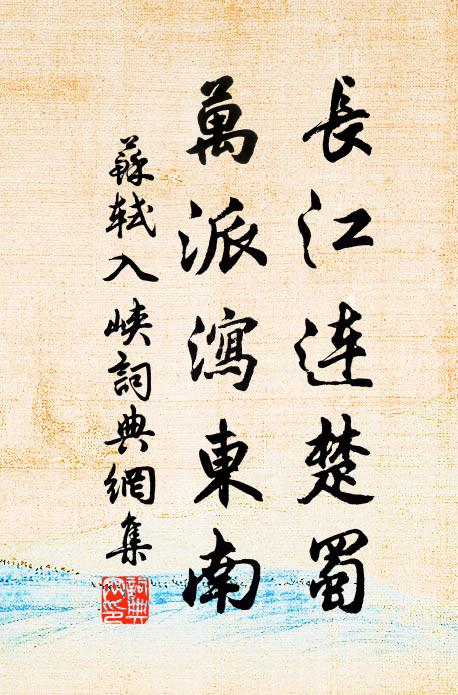 長江連楚蜀
萬派瀉東南
蘇軾入峽詞典網集